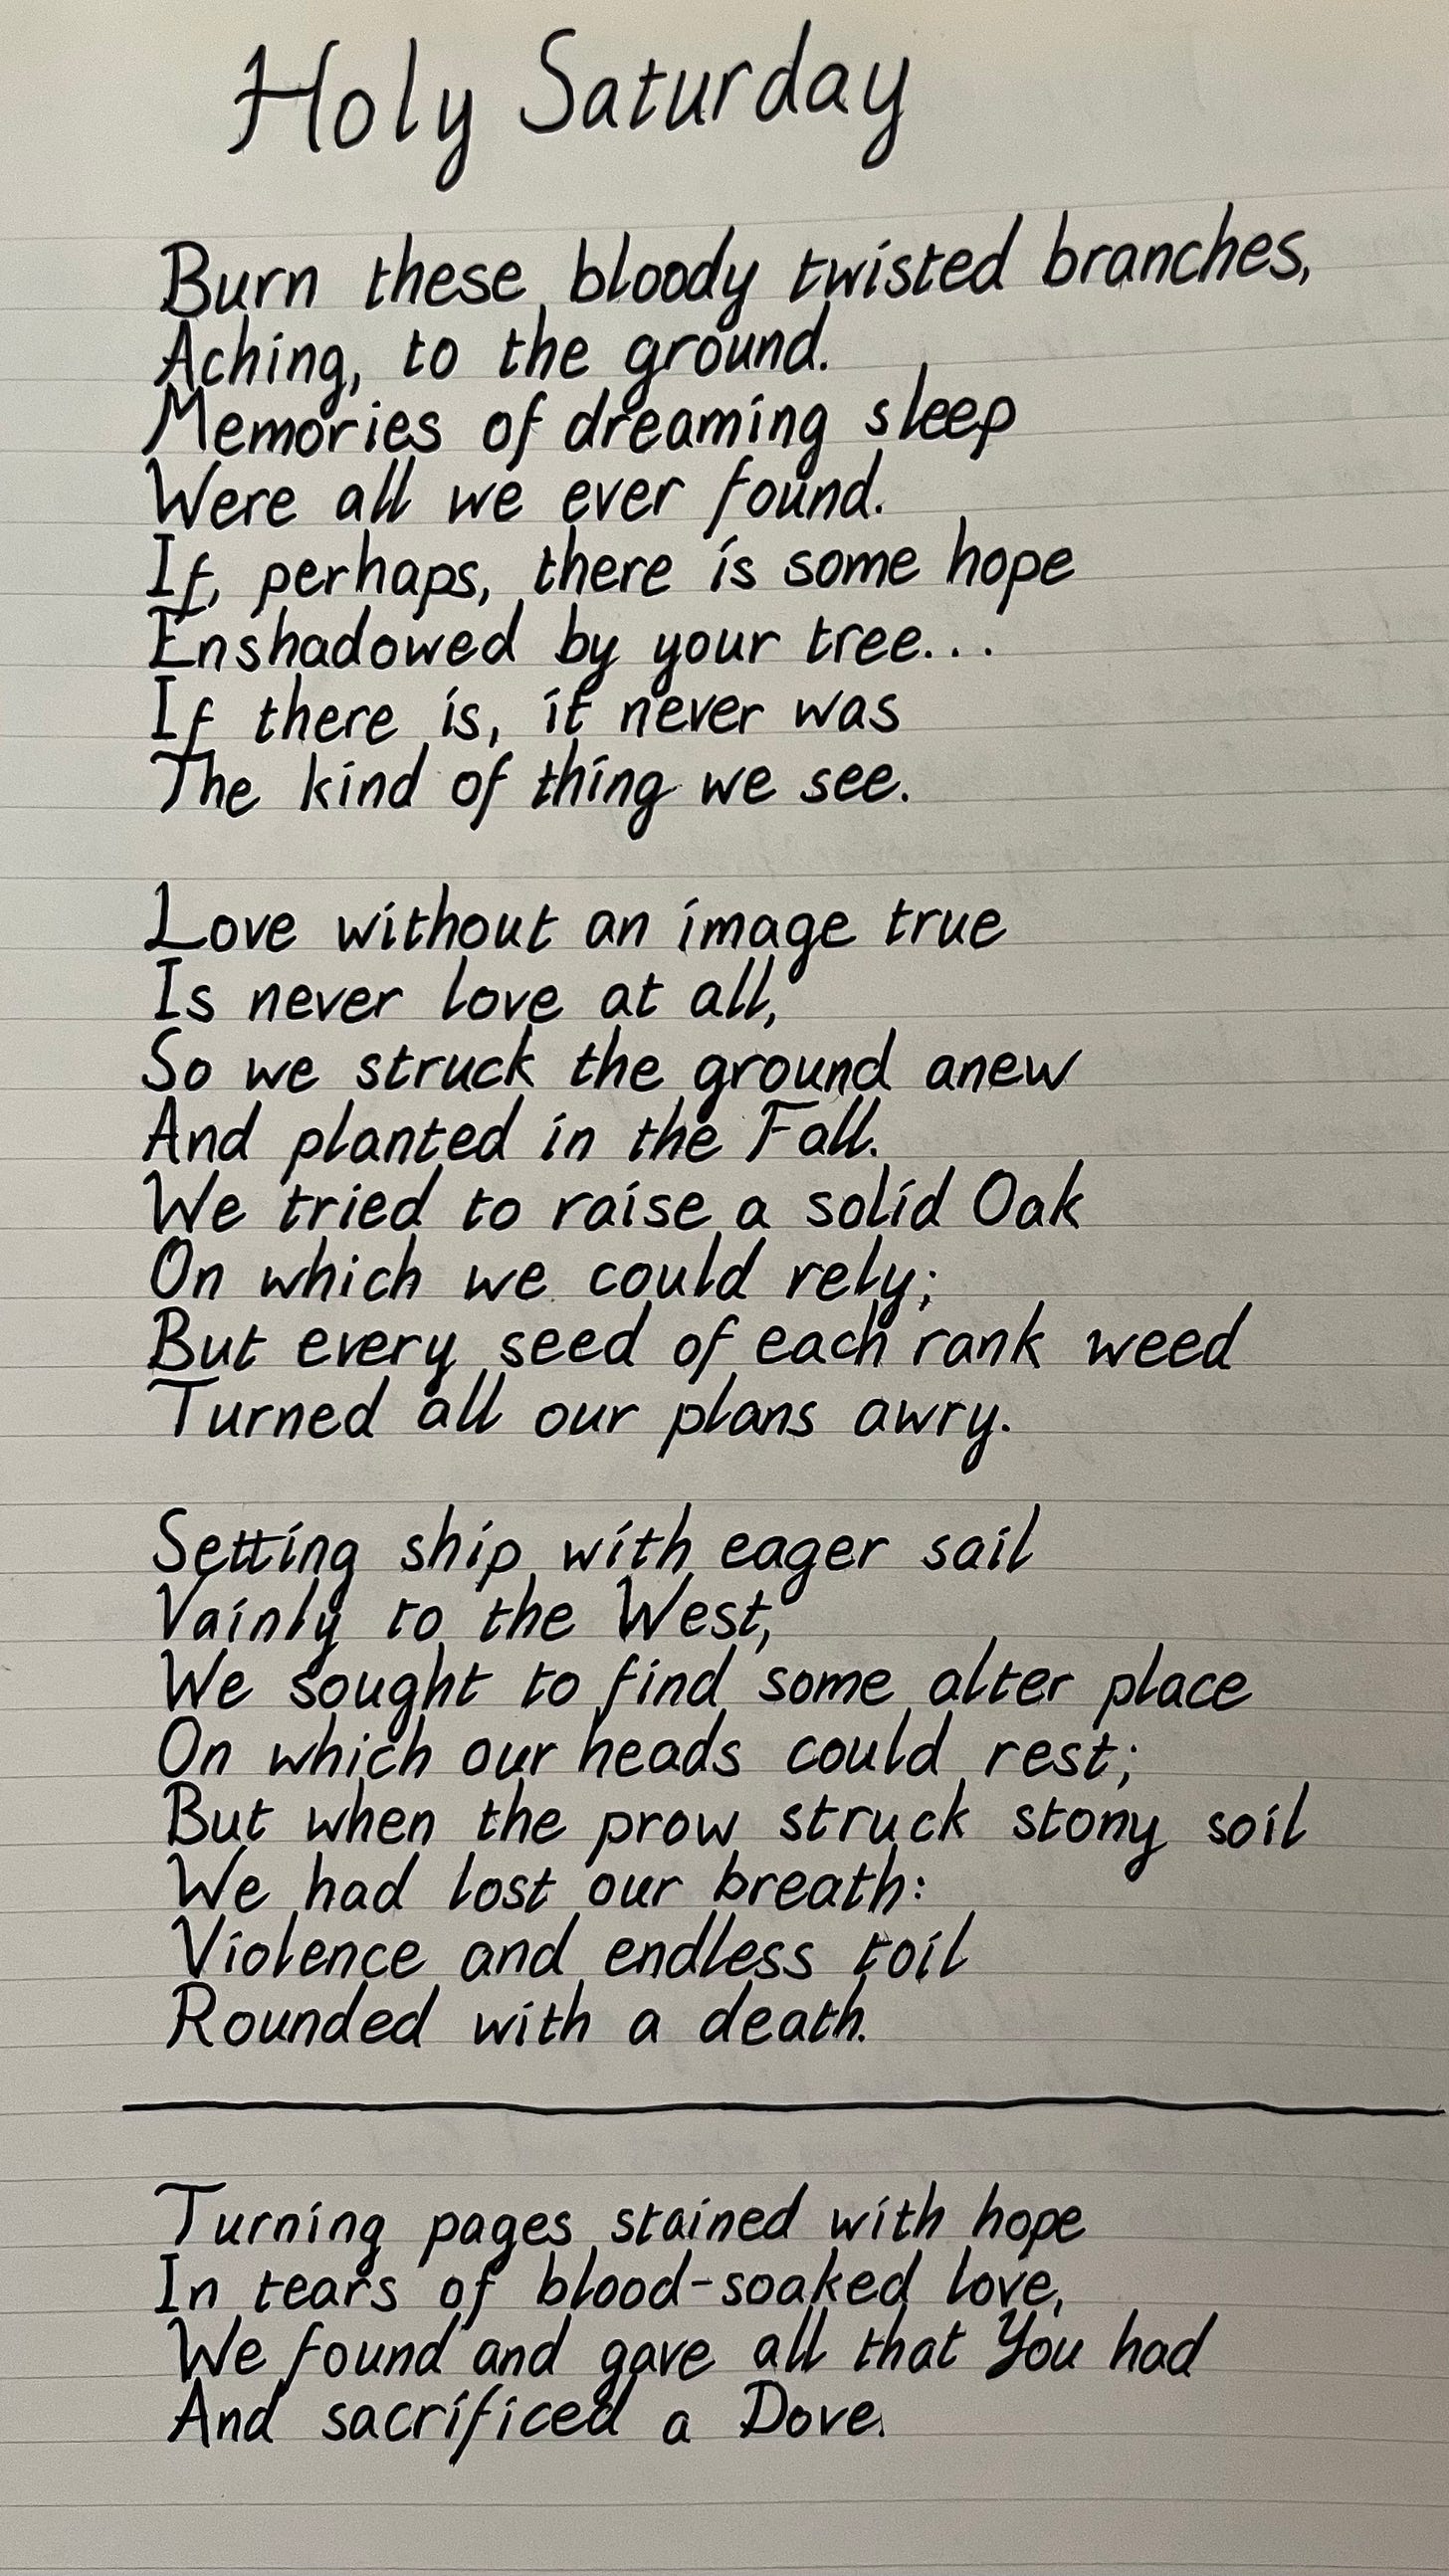 Holy Saturday
Burn these bloody twisted branches,
Aching, to the ground.
Memories of dreaming sleep
Were all we ever found.
If, perhaps, there is some hope
Enshadowed by your tree...
If there is, it never was
The kind of thing we see.
Love without an image true
Is never love at all,
So we struck the ground anew
And planted in the Fall.
We tried to raise a solid Oak
On which we could rely;
But every seed of each rank weed
Turned all our plans awry.
Setting ship with eager sail
Vainly to the West,
We sought to find some alter place
On which our heads could rest;
But when the prow struck stony soil
We had lost our breath:
Violence and endless toil
Rounded with a death.
Turning pages stained with hope
In tears of blood-soaked love,
We found and gave all that You had
And sacrificed a Dove.